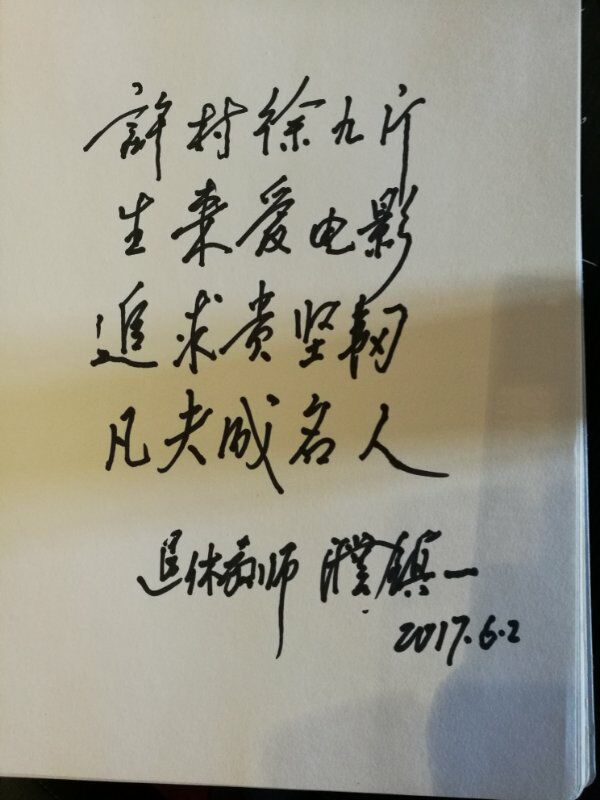 許村徐九斤
生来爱电影
追求贵坚韧
凡夫成名人
退休教师 濮鎮一
2017.6.2